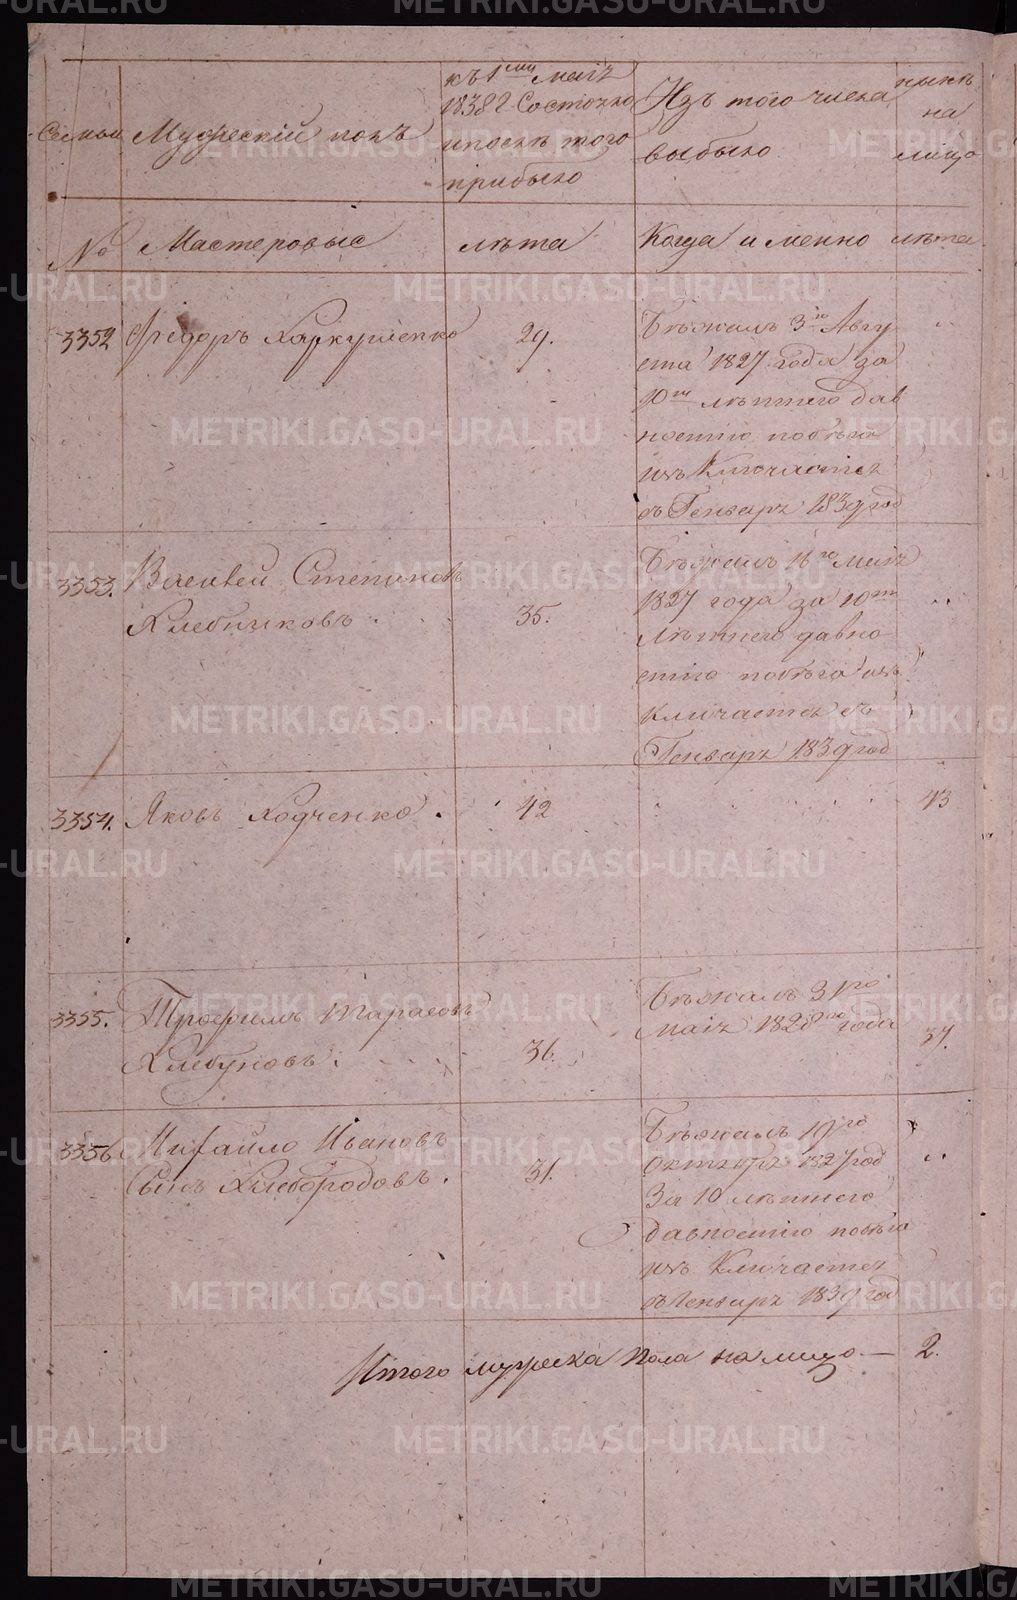 METRIKI.GASO-URAL.RU
Семьи
Мужескiй полъ
къ 1му маiя
1838 г. Состояло
и послѣ того
прибыло
Изъ того числа
выбыло
нынѣ
на
лицо
№
Мастеровые
лѣта
Когда именно
лѣта
3352
Федоръ Харкушенко
29.
Бѣжалъ 3го Авгу
ста 1827 года за
10ти лѣтнею дав
ностiю побѣга
ихъ Ключается
съ Генваря 1839 год
3353.
Василей Степановъ
Хлебниковъ.
35.
Бѣжалъ 16го маiя
1827 года за 10ти
Лѣтнею давно
стiю побѣга ихъ
Ключается съ
Генваря 1839 год
3354.
Яковъ Ходченко.
42
43
3355.
Трофимъ Тарасовъ
Хлебуновъ.
36.
Бѣжалъ 31го
маiя 1828го года
37.
3356
Михайло Ивановъ
Сынъ Хлебородовъ.
31.
Бѣжалъ 19го
Октября 1827 год
За 10 лѣтнею
давностiю побѣга
ихъ Ключается
съ Генваря 1839 год
Итого мужеска пола на лицо — 2.